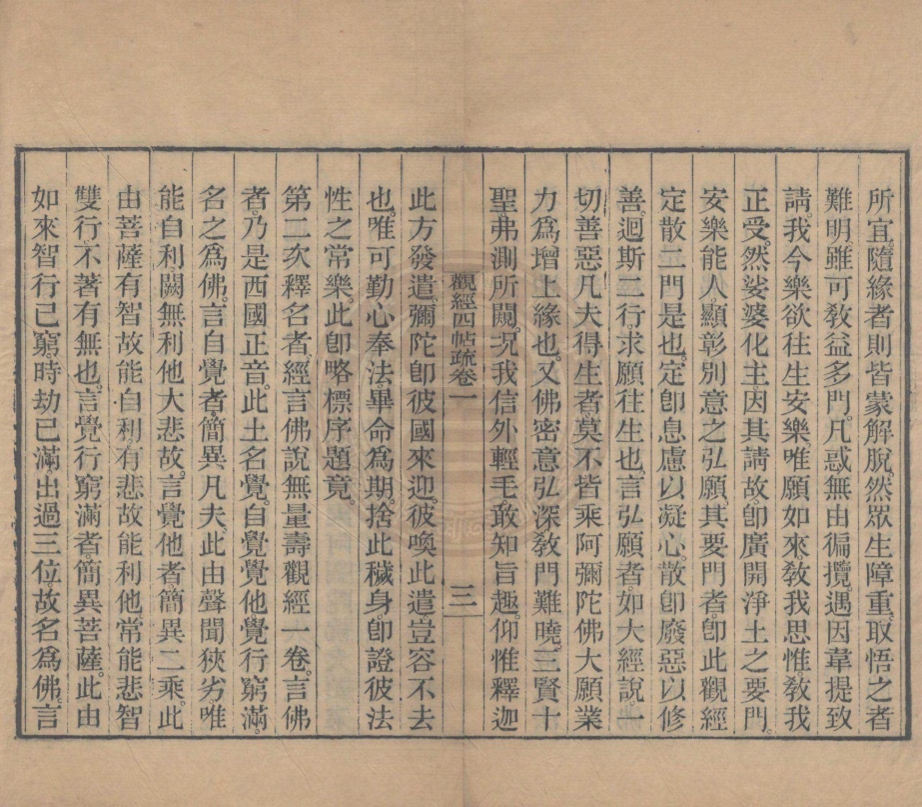 所宜。隨緣者則皆蒙解脫。然眾生障重。取悟之者
難明。雖可敎益多門。凡惑無由徧攬。遇因韋提致
請。我今樂欲往生安樂。唯願如來敎我思惟。敎我
正受。然娑婆化主因其請故。卽廣開淨土之要門。
安樂能人顯彰別意之弘願。其要門者。卽此觀經
定散二門是也。定卽息慮以凝心。散卽廢惡以修
善。迴斯二行。求願往生也。言弘願者。如大經說。一
切善惡凡夫得生者。莫不皆乘阿彌陀佛大願業
力爲增上緣也。又佛密意弘深。敎門難曉。三賢十
聖弗測所闚。况我信外輕毛。敢知旨趣。仰惟釋迦
觀經四帖疏卷一
三
此方發遣。彌陀卽彼國來迎。彼喚此遣。豈容不去
也。唯可勤心奉法。畢命爲期。捨此穢身。卽證彼法
性之常樂。此卽略標序題竟。
第二次釋名者。經言佛說無量壽觀經一卷。言佛
者。乃是西國正音。此土名覺。自覺覺他。覺行窮滿。
名之爲佛。言自覺者。簡異凡夫。此由聲聞狹劣。唯
能自利。闕無利他大悲故。言覺他者。簡異二乘。此
由菩薩有智故能自利。有悲故能利他。常能悲智
雙行。不著有無也。言覺行窮滿者。簡異菩薩。此由
如來智行已窮。時劫已滿。出過三位。故名爲佛。言